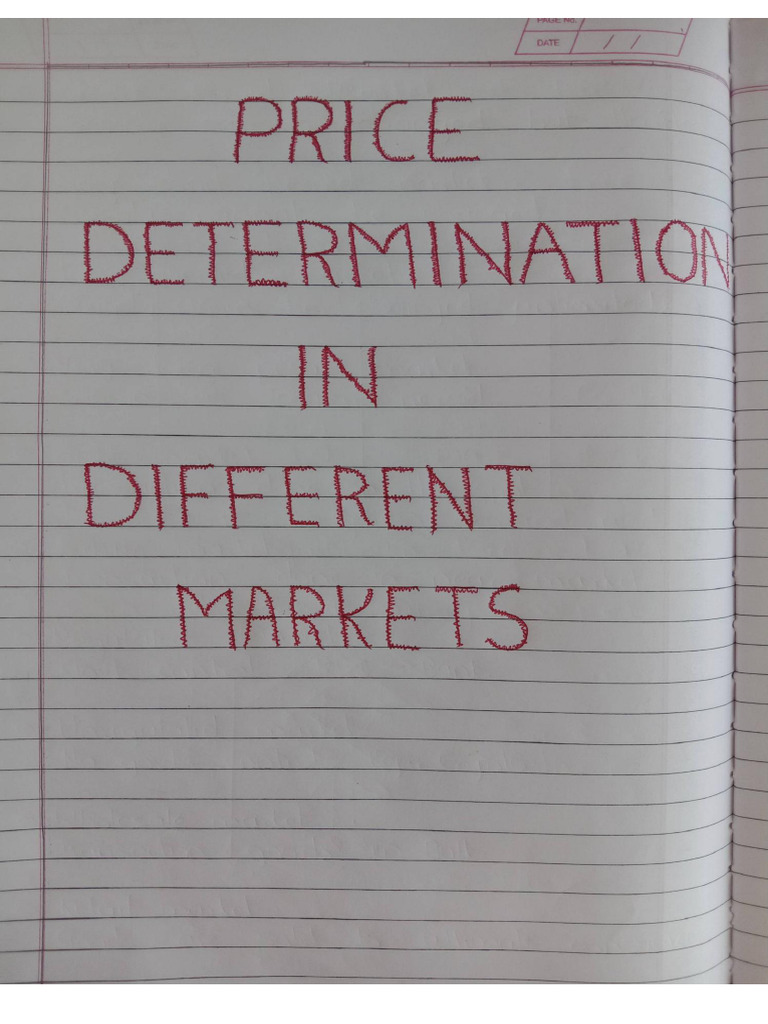 PAGE NO.
DATE / /
PRICE
DETERMINATION
IN
DIFFERENT
MARKETS